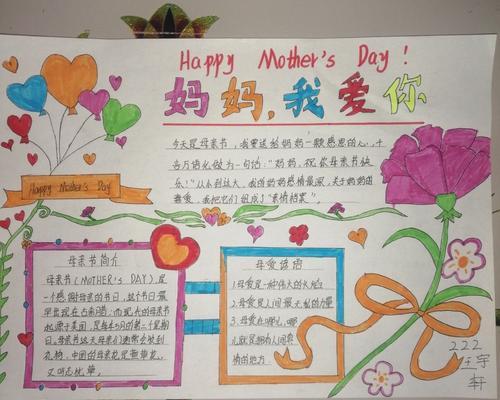 Happy Mother's Day!
妈妈,我爱你
今天是母亲节,我要送给妈妈一颗感恩的心,千
言万语化做为一句话:"妈妈,祝你母亲节快
乐!"从小到大,我的妈妈感情最深,关于妈妈的
我把它们组成了"亲情档案"。
Happy Mother's Day
母亲节简介
母亲节(MOTHER'S DAY),是
一个感谢母亲的节日,这个节日最
早出现在古希腊;而现代的母亲节
起源于美国,是每年5月的第二个星期
日。母亲节这天母亲们通常会收到
礼物,中国的母亲花是萱草花,
又叫忘忧草。
母爱谚语
1.母爱是一种伟大的火焰
2.母爱是人间最无私的力量
3.母爱在哪儿,哪
儿就是拥有人间亲
情的地方
222
王宇
轩